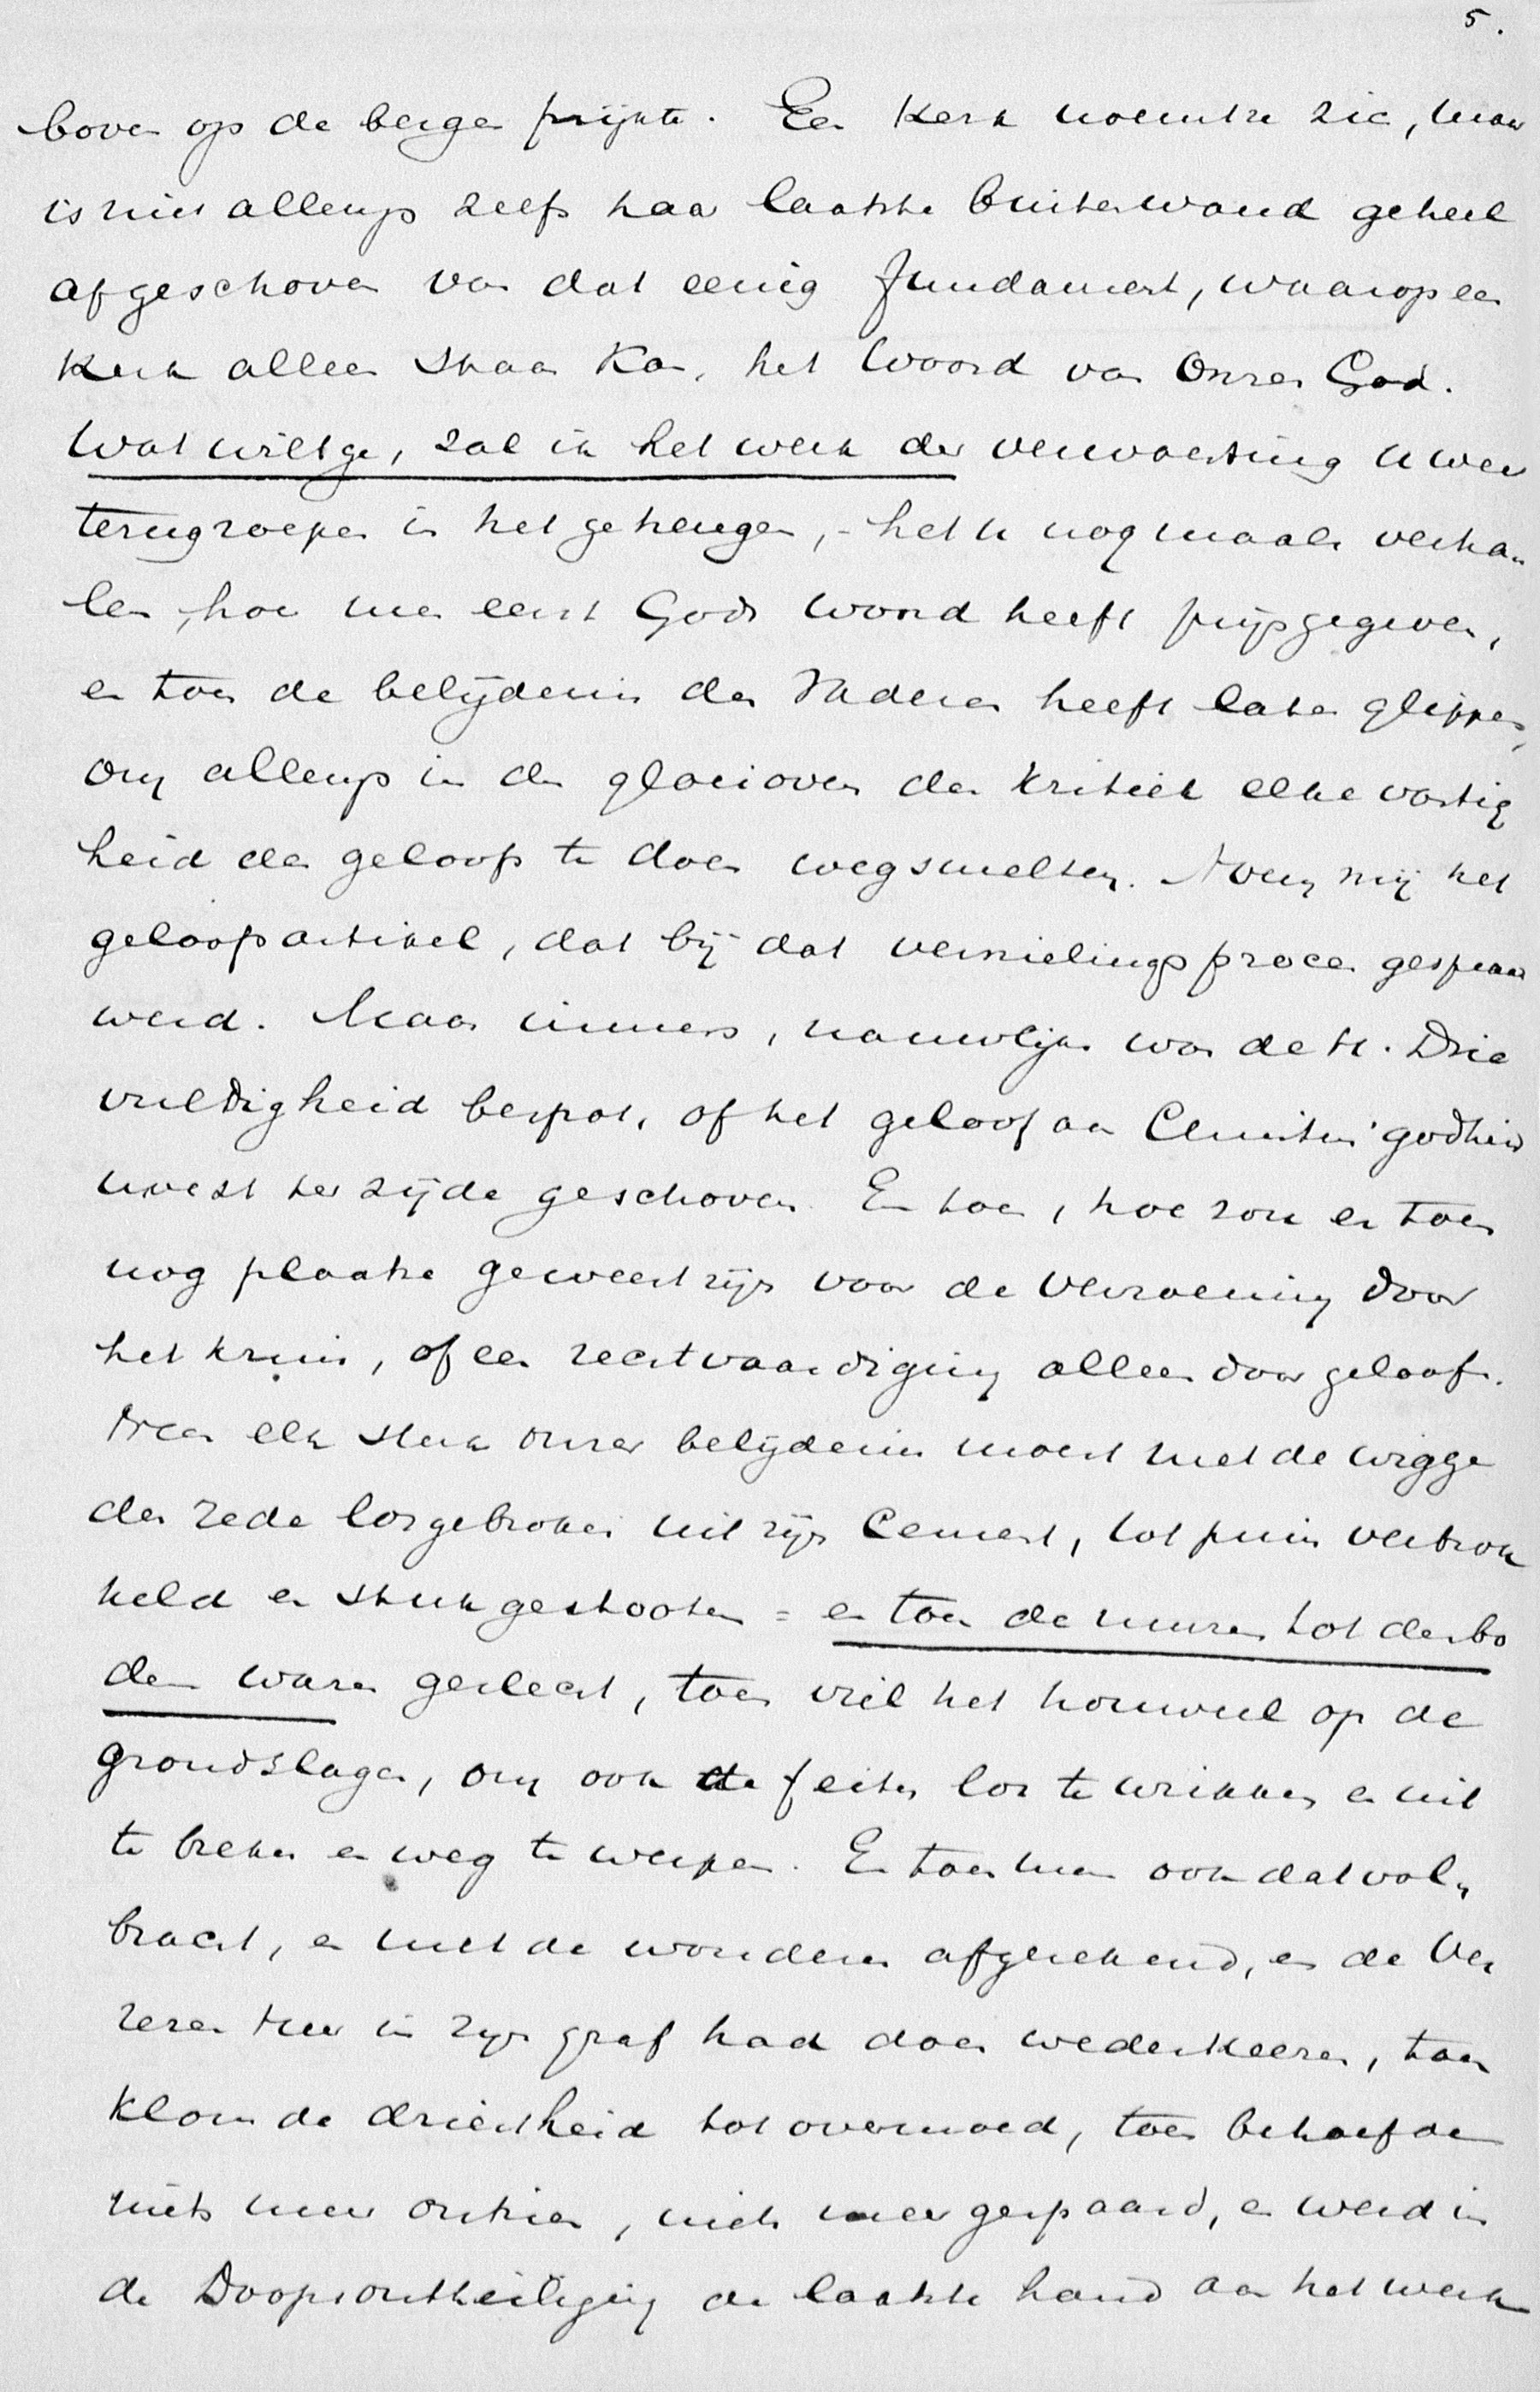 5.
boven op de bergen prijkte. Een Kerk noemtze zich, maar
is niet allengs zelfs haar laatste buitenwand geheel
afgeschoven van dat eenig fundament, waarop een
Kerk alleen staan Kan, het Woord van Onzen God.
Wat wilt ge, zal ik het werk der verwoesting U weer
terugroepen in het geheugen, - het U nogmaals verha
len, hoe men eerst Gods Woord heeft prijsgegeven,
en toen de belijdenis der Vaderen heeft laten glippen,
om allengs in den gloeioven der Kritiek elke vastig
heid des geloofs te doen wegsmelten. Noem mij het
geloofsartikel, dat bij dat vernielingsproces gespaard
werd. Maar immers, nauwlijks was de H. Drie
vuldigheid bespot, of het geloof aan Christus' godheid
werd ter zijde geschoven. En toen, hoe zou er toen
nog plaatse geweest zijn voor de Verzoening door
het kruis, of een rechtvaardiging alleen door geloof.
Neen elk stuk onzer belijdenis moest met de wigge
der rede losgebroken uit zijn Cement, tot puin verbrok
keld en stukgestooten = en toen de muren tot den bo
dem waren geslecht, toen viel het houweel op de
grondslagen, om ook de feiten los te wrikken en uit
te breken en weg te werpen. En toen men ook dat vol„
bracht, en met de wonderen afgerekend, en de Ver
rezen Heer in zijn graf had doen wederkeeren, toen
klom de driestheid tot overmoed, toen behoefde
niets meer ontzien, niets meer gespaard, en werd in
de Doopsontheiliging de laatste hand aan het werk